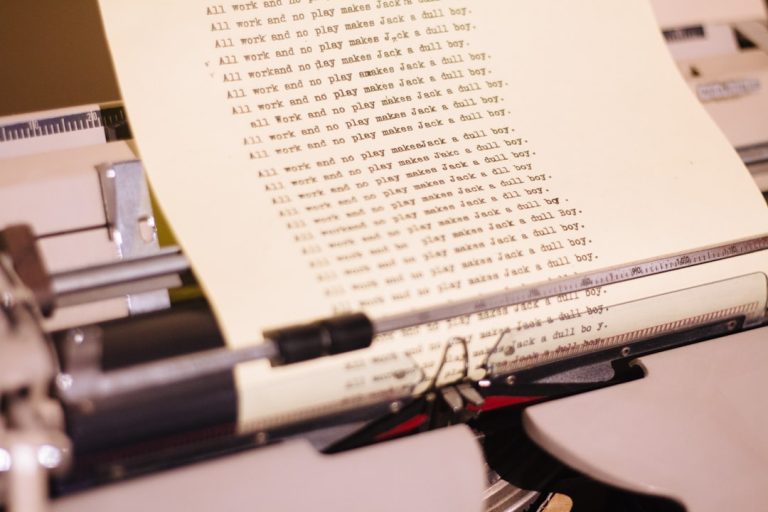 All work and no play makes Jack a dull boy.
All work and no play makes Jack a dull boy.
All work and no play makes J ck a dull boy.
All work and no play makes Jack a dull boy.
All workand no play amakes Jack a dull boy.
All work and no play makes Jack a dull boy.
all Work and no play makes Jack a dull boy.
All work and no play makes Jack a dull boy.
All work and no play makes Jack a dull boy.
All work and no play makesJack a dull boy.
All work and no play makes Jakc a dull boy.
All work and no play makes Jack a dll boy.
All work and no play makes Jack a dull boy.
All work and no play makes Jack a dull boy.
All work and no play makes Jack a dull Boy.
All work and no play makes Jack a dull boy.
All work and no play makes Jack a dull boy.
work and no play makes Jack a dull boy.
play makes Jack a dull boy.
makes Jack a dull bo y.